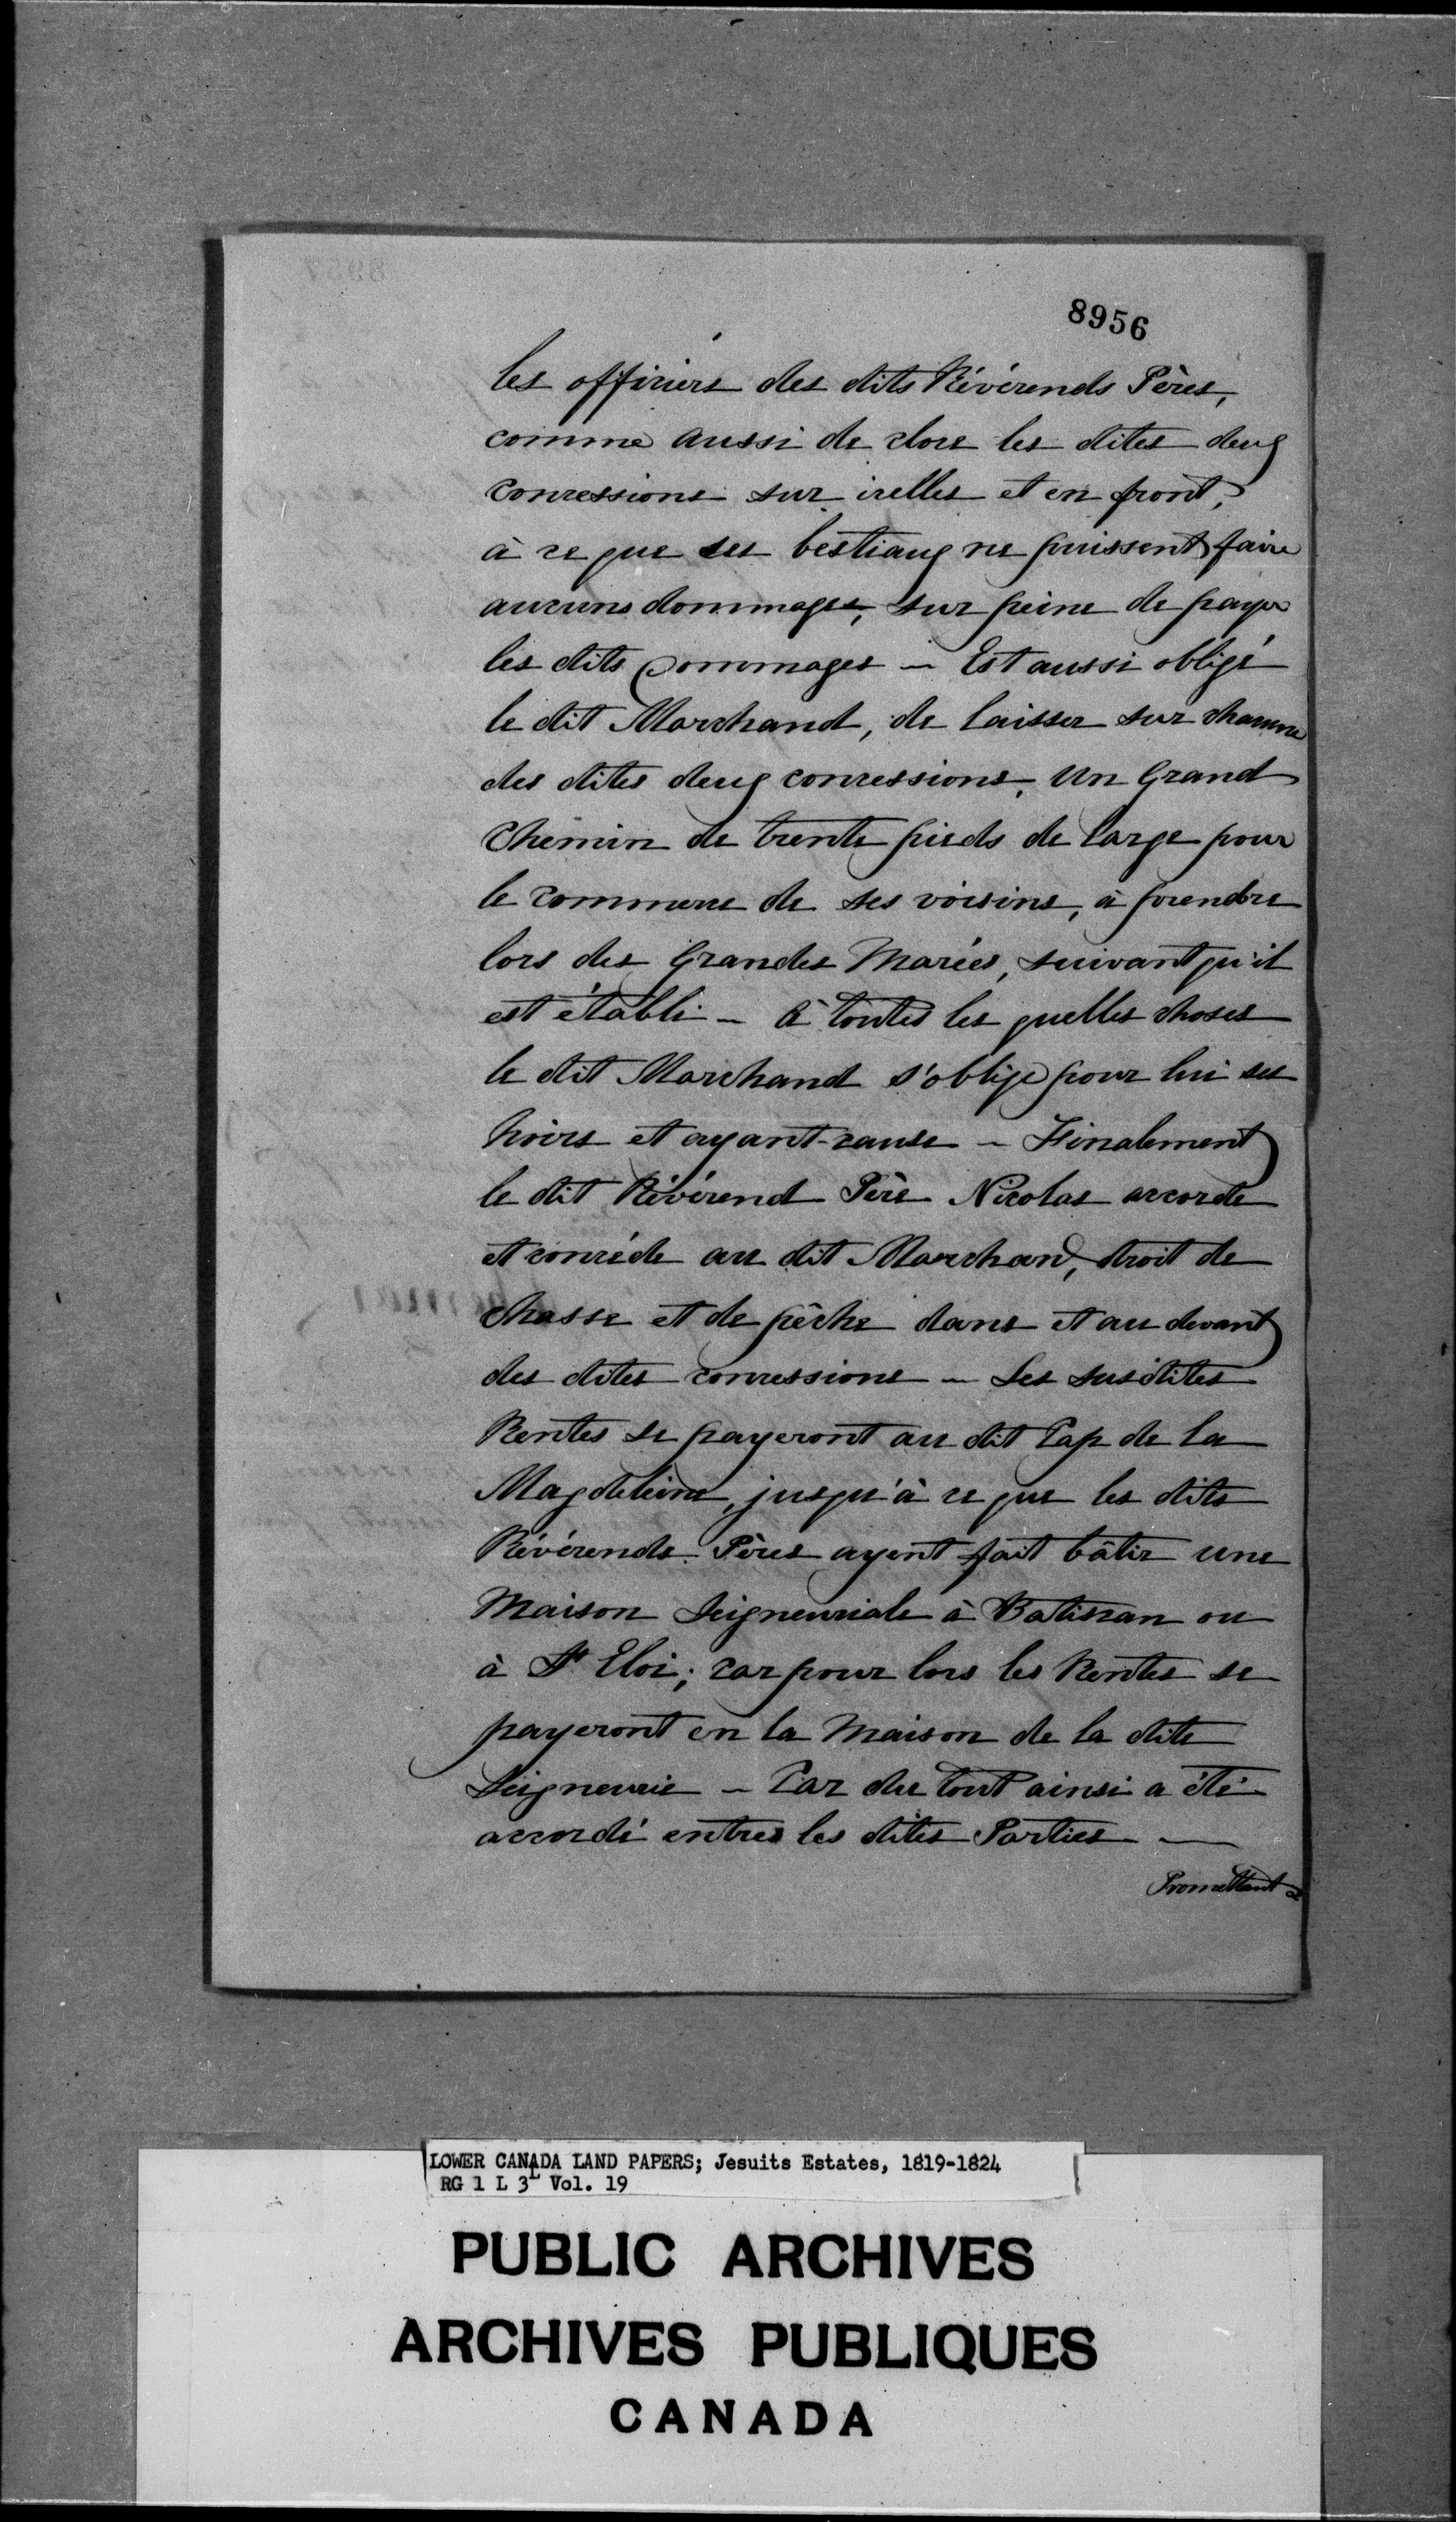 8956
les officiers des dits Révérends Pères,
comme aussi de clore les dites deux
concessions sur icelles et en front,
à ce que ses bestiaux ne puissent faire
aucuns dommages, sur peine de payer
les dits Dommages – Est aussi obligé
le dit Marchand, de laisser sur chacune
des dites deux concessions, Un Grand
Chemin de trente pieds de large pour
le commerce de ses voisins, à prendre
lors des Grandes Marées, suivant qu'il
est établi – à toutes les quelles choses
le dit Marchand s'oblige pour lui ses
hoirs et ayant-cause – Finalement
le dit Révérend Père Nicolas accorde
et concède au dit Marchand, droit de
chasse et de pêche dans et au devant
des dites concessions – Les susdites
Rentes se payeront au dit Cap de la
Magdeleine, jusqu'à ce que les dits
Révérends Pères ayent fait bâtir une
Maison Seigneuriale à Batiscan ou
à St Eloi; car pour lors les Rentes se
payeront en la Maison de la dite
Seigneurie – Car du tout ainsi a été
accordé entres les dites Parties —
Promettant
LOWER CANADA LAND PAPERS; Jesuits Estates, 1819-1824
RG 1 L 3L Vol. 19
PUBLIC ARCHIVES
ARCHIVES PUBLIQUES
CANADA